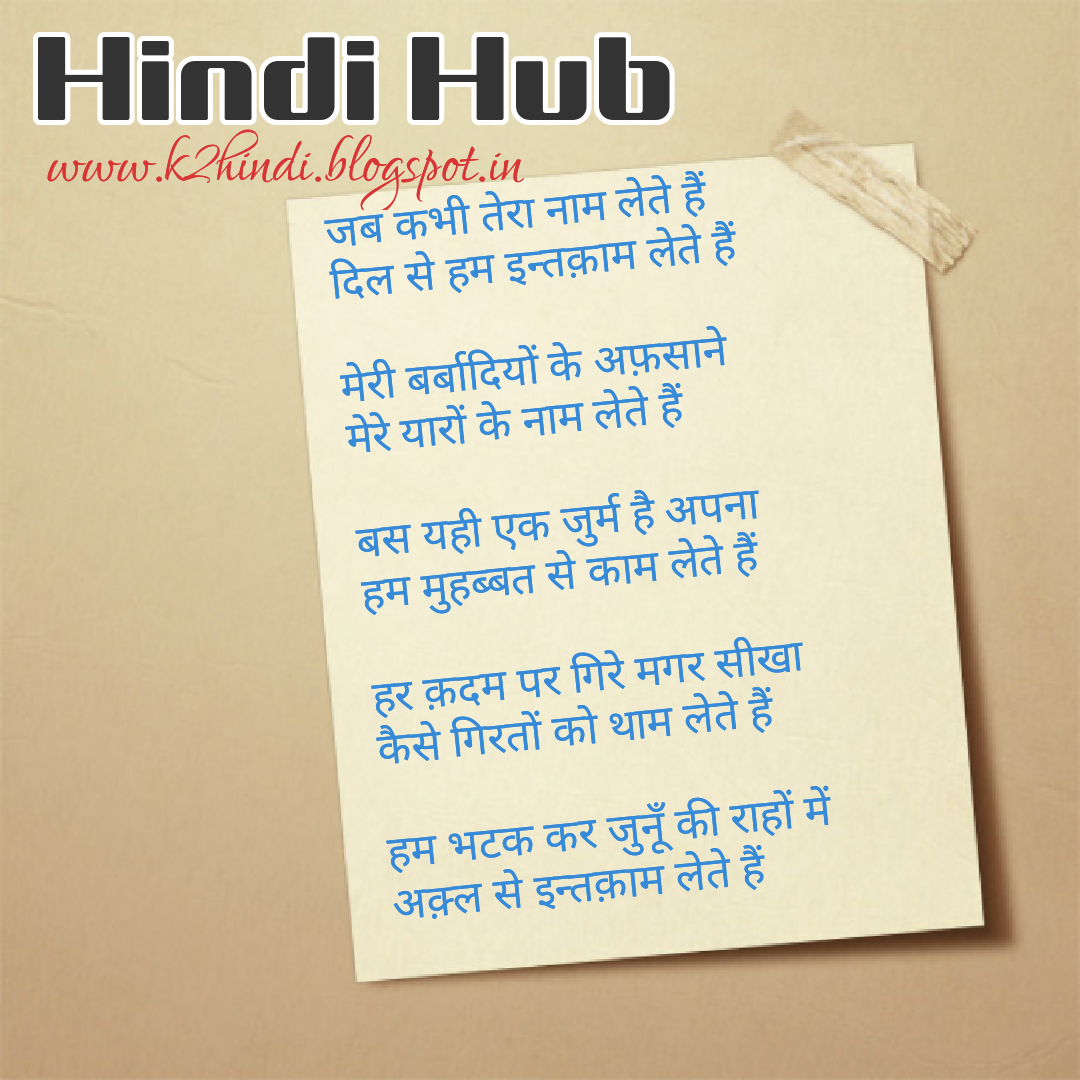 Hindi Hub
www.k2hindi.blogspot.in
जब कभी तेरा नाम लेते हैं
दिल से हम इन्तक़ाम लेते हैं
मेरी बर्बादियों के अफ़साने
मेरे यारों के नाम लेते हैं
बस यही एक जुर्म है अपना
हम मुहब्बत से काम लेते हैं
हर क़दम पर गिरे मगर सीखा
कैसे गिरतों को थाम लेते हैं
हम भटक कर जुनूँ की राहों में
अक़्ल से इन्तक़ाम लेते हैं